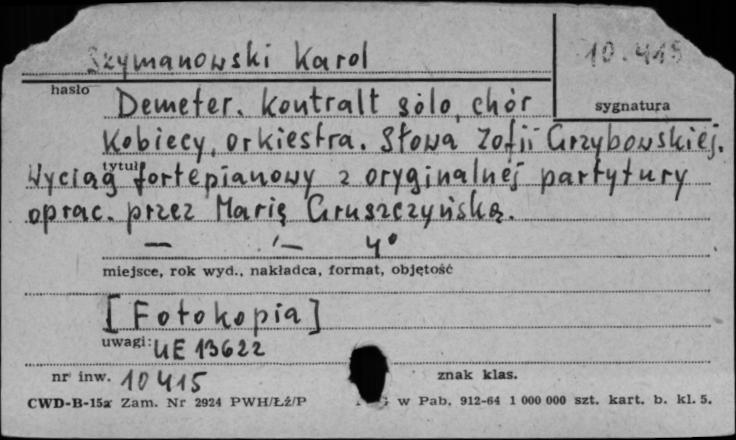 Szymanowski Karol
10.415
hasło
sygnatura
Demeter. Kontralt solo, chór
Kobiecy, orkiestra. Słowa Zofii Grzybowskiej.
tytuł
Wyciąg fortepianowy z oryginalnej partytury
oprac. przez Marię Gruszczyńską.
— '— 4°
miejsce, rok wyd., nakładca, format, objętość
[Fotokopia]
uwagi: UE 13622
nr inw. 10415
znak klas.
CWD-B-15a Zam. Nr 2924 PWH/Łź/P
w Pab. 912-64 1 000 000 szt. kart. b. kl. 5.